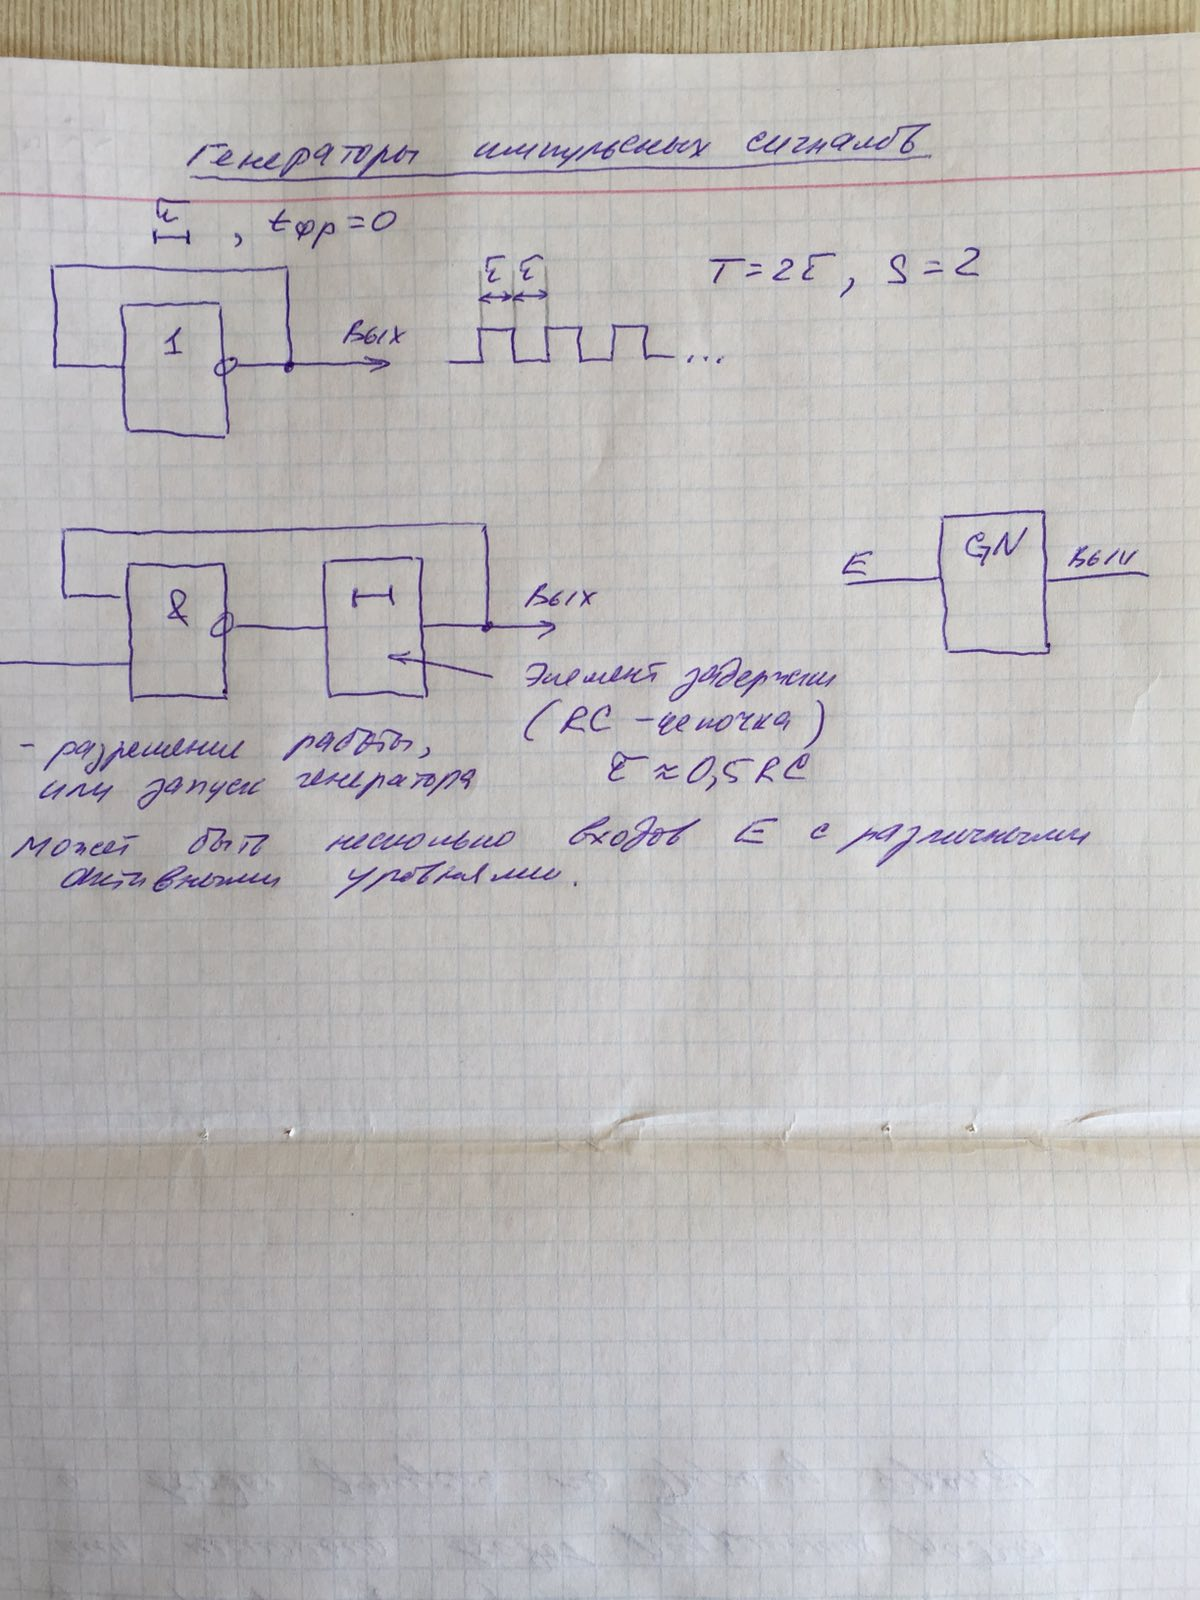 Генераторы импульсных сигналов
τ , tфр=0
τ τ
T=2τ, S=2
1
Вых
...
&
Вых
E
GN
Вых
Элемент задержки
(RC-цепочка)
τ≈0,5RC
- разрешение работы,
или запуск генератора
Может быть несколько входов E с различными
активными уровнями.